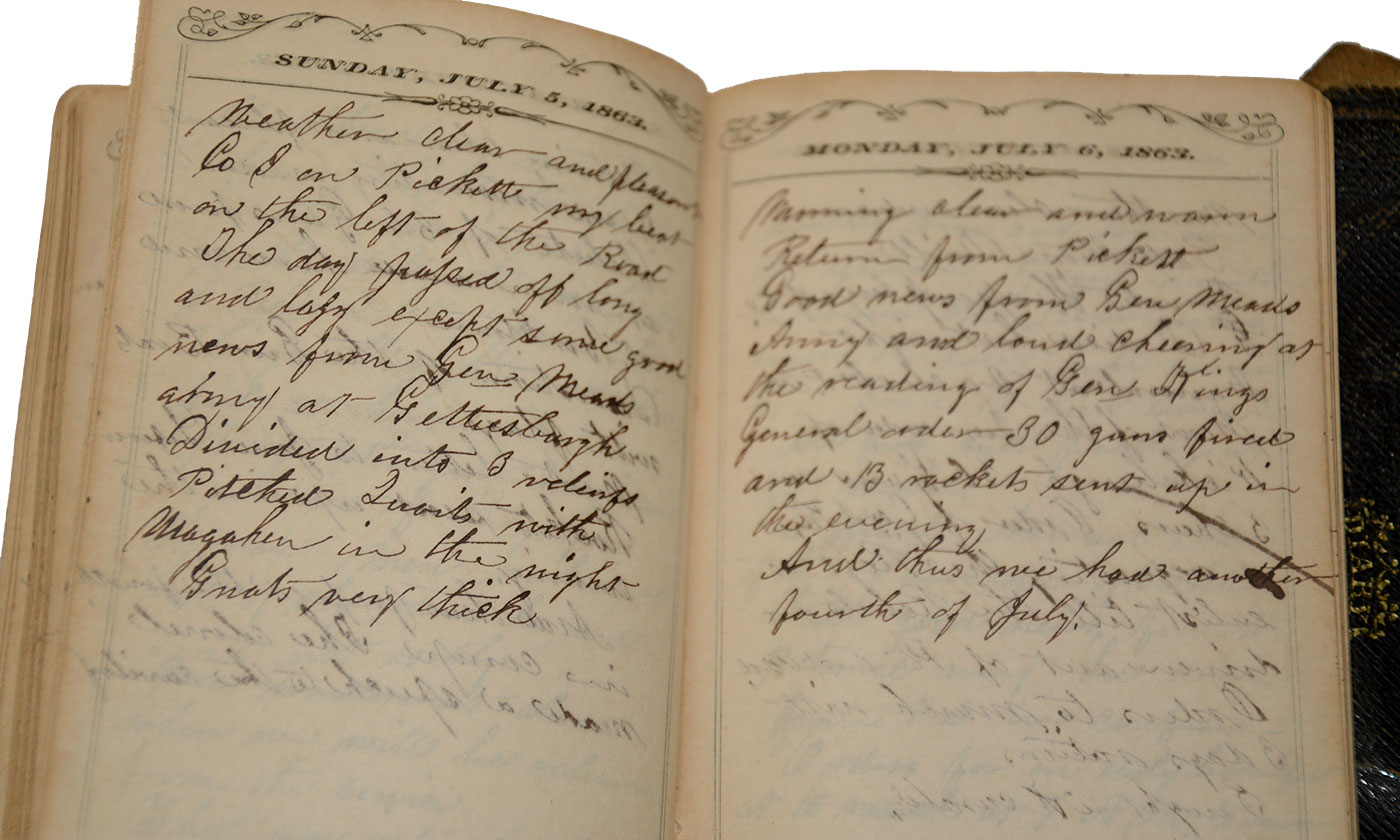 SUNDAY, JULY 5, 1863.
Weather clear and pleasant
Co I on Pickett my beat
on the left of the Road
The day passed off long
and lazy except some good
news from Gen Meads
army at Gettiesburgh
Divided into 3 reliefs
Pitched Quoits with
Magahen in the night
Gnats very thick
MONDAY, JULY 6, 1863.
Morning clear and warm
Return from Pickett
Good news from Gen Meads
Army and loud cheering at
the reading of Gen Kings
General order 30 guns fired
and 13 rockets sent up in
the evening
And thus we had another
fourth of July.
DIARY